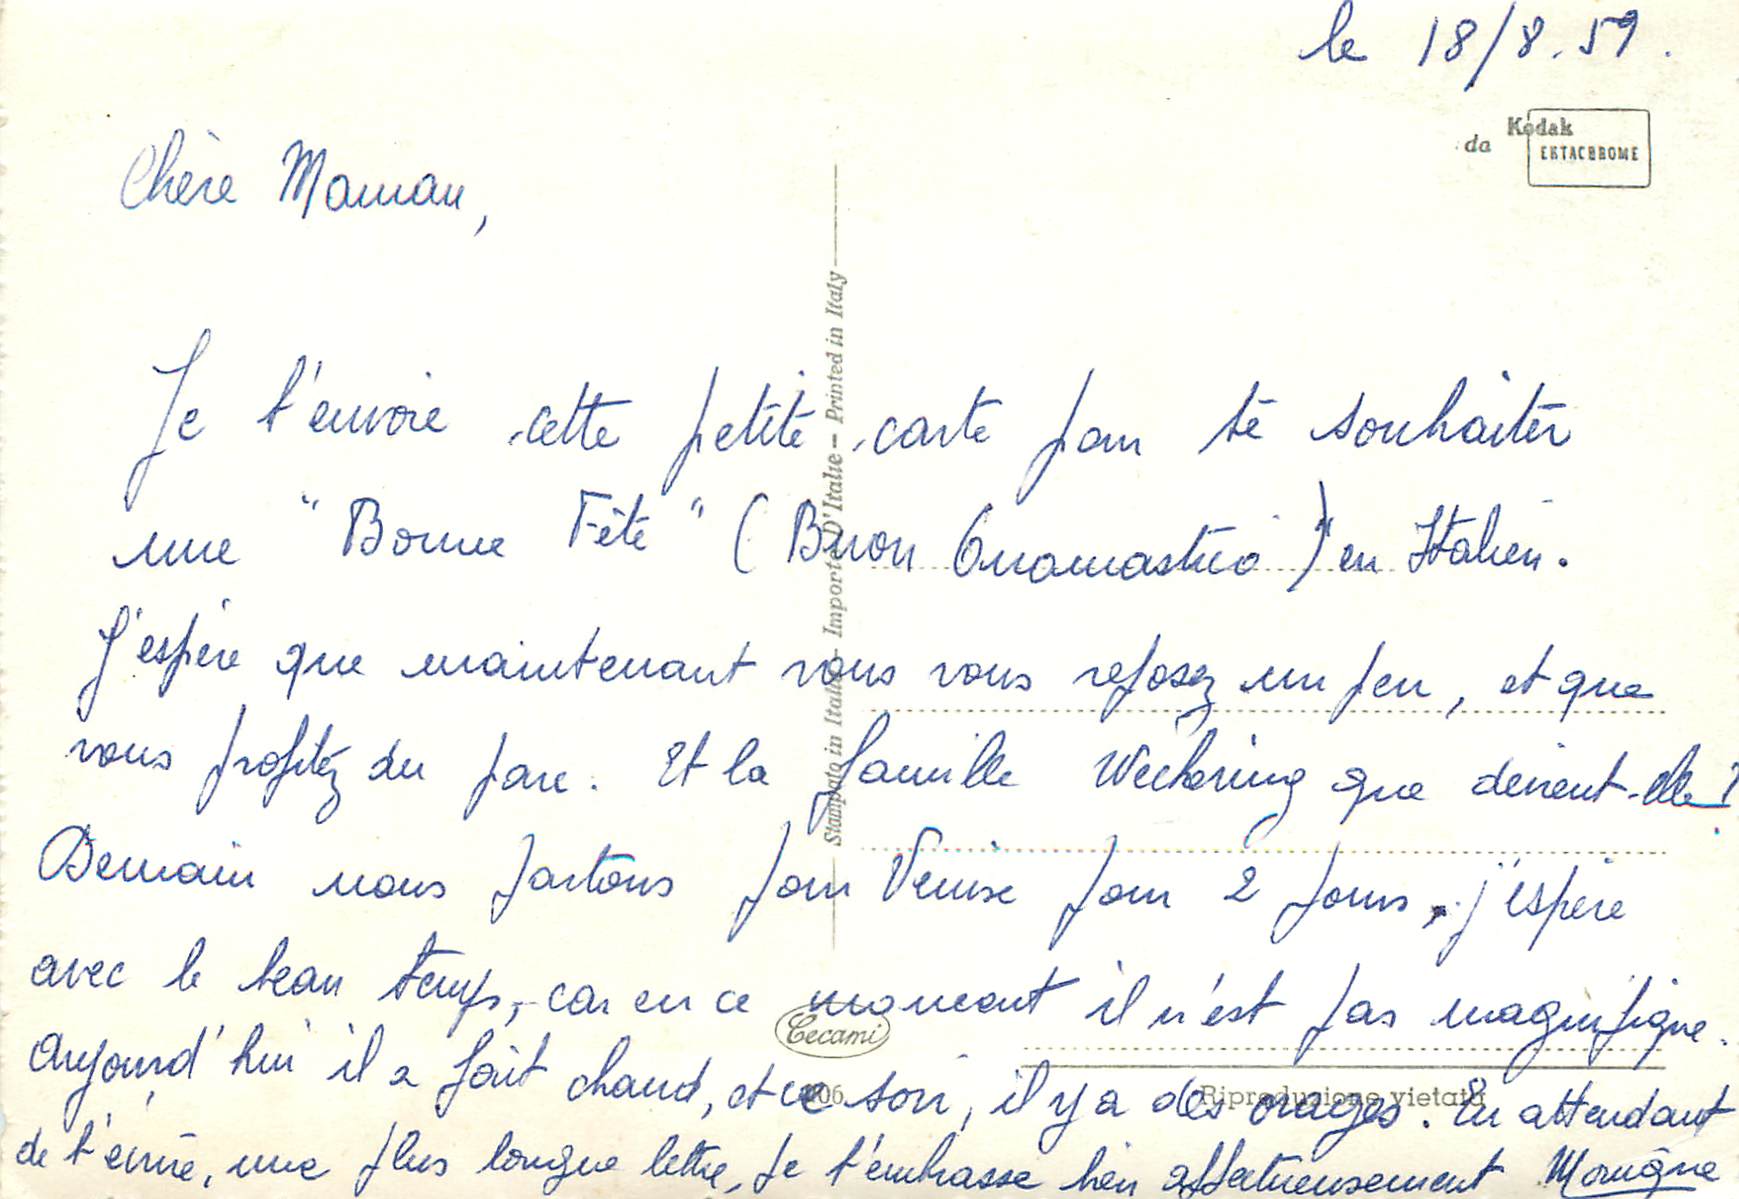 le 18/8.59.
da Kodak
EKTACHROME
Chère Maman,
Je t'envoie cette petite carte pour te souhaiter
une "Bonne Fête" (Buon Onomastico) en Italien.
J'espère que maintenant vous vous reposez un peu, et que
vous profitez du parc. Et la famille Weckering que devient-elle?
Demain nous partons pour Venise pour 2 jours, j'espère
avec le beau temps, car en ce moment il n'est pas magnifique.
Aujourd'hui il a fait chaud, et ce soir, il y a des orages. En attendant
de t'écrire, une plus longue lettre, je t'embrasse bien affectueusement Monique
Stampato in Italia - Importé D'Italie - Printed in Italy
Cecami
Riproduzione vietata